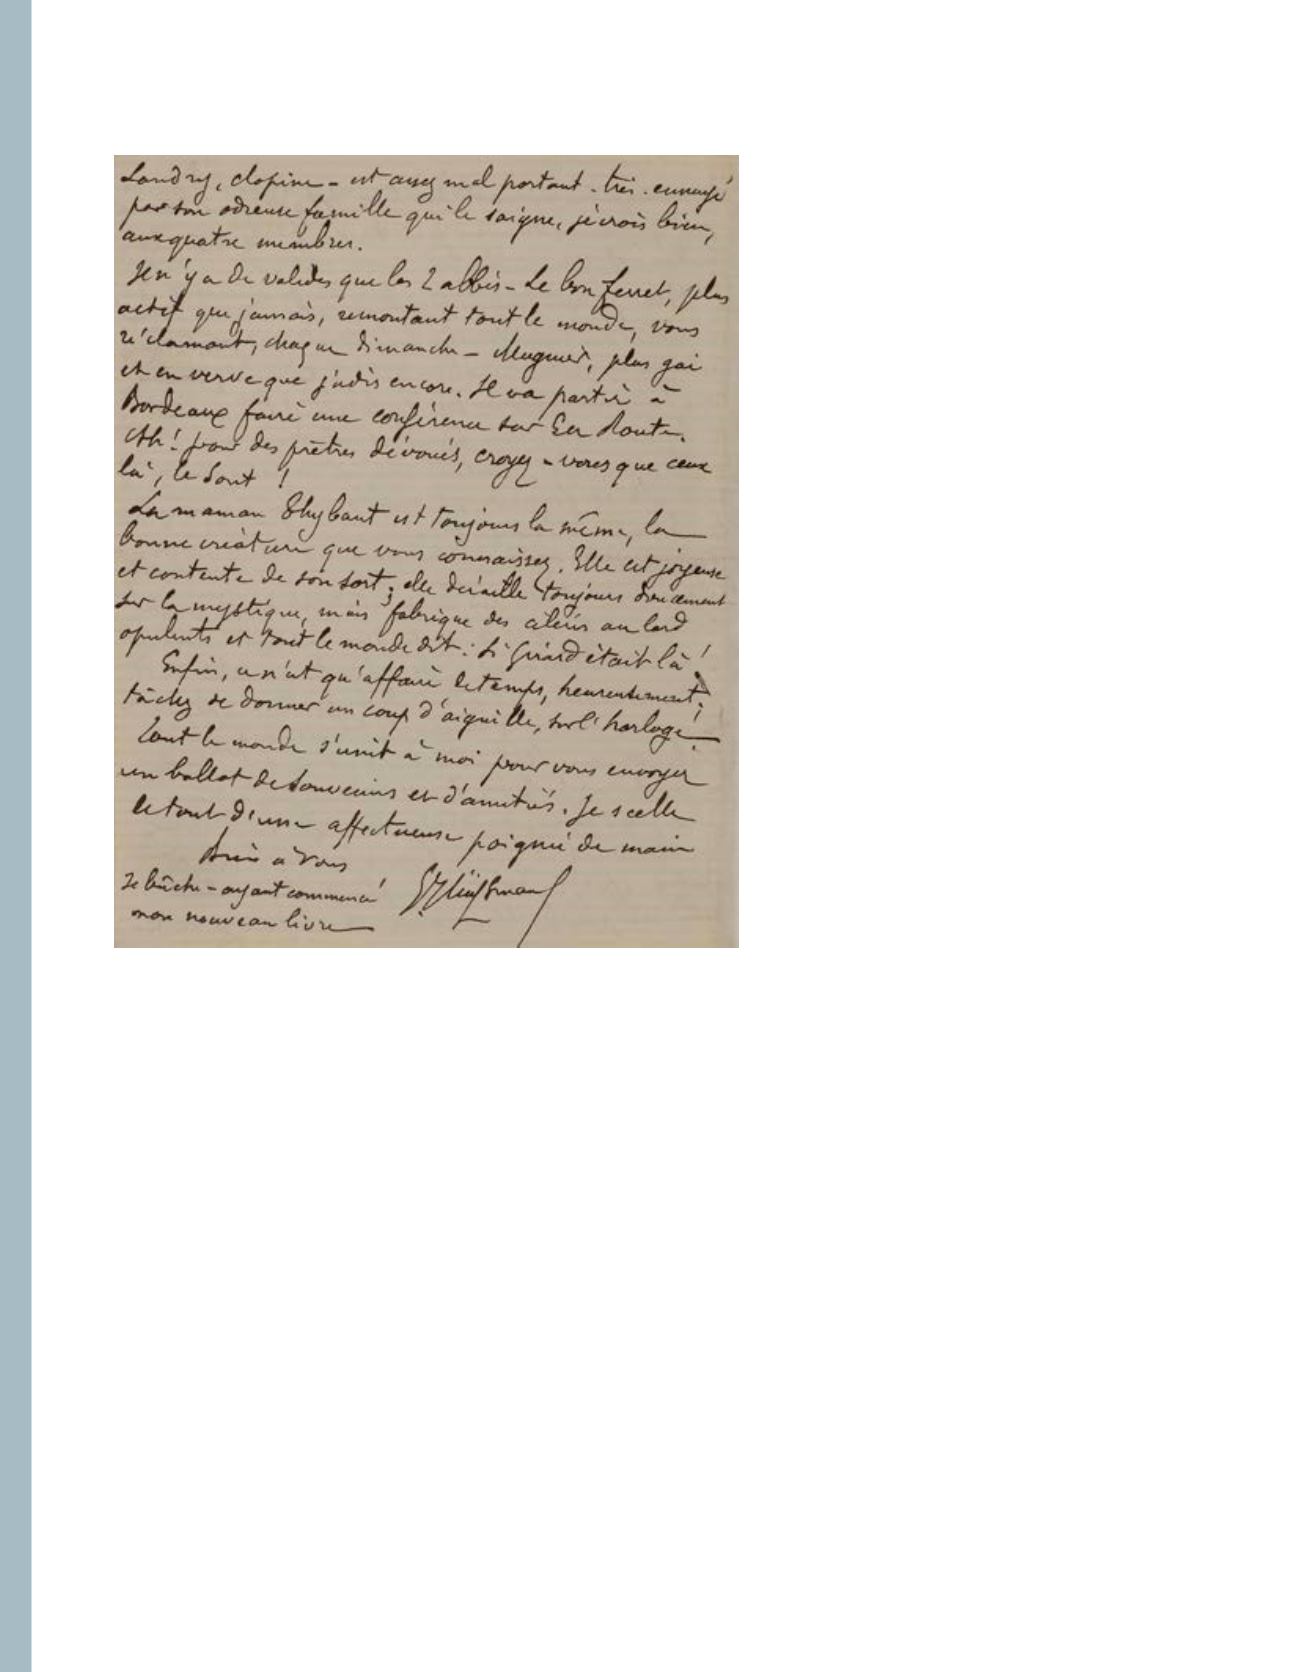 Landry, clopine – est assez mal portant – très ennuyé
par son odieuse famille qui le saigne, je crois bien,
aux quatre membres.
Il n'y a de valides que les 2 abbés – Le bon Ferret, plus
actif que jamais, remontant tout le monde, vous
réclamant, chaque dimanche – Mugnier, plus gai
et en verve que jadis encore. Il va partir à
Bordeaux faire une conférence sur En Route.
Ah! pour des prêtres dévoués, croyez-vous que ceux
là, le sont !
La maman Thybaut est toujours la même, la
bonne créature que vous connaissez. Elle est joyeuse
et contente de son sort ; elle déraille toujours doucement
sur la mystique, mais fabrique des au lard
opulents et tout le monde dit : Si Girard était là !
Enfin, ce n'est qu'affaire de temps, heureusement ;
tâchez de donner un coup d'aiguille, sur l'horloge !
Tout le monde s'unit à moi pour vous envoyer
un ballot de souvenirs et d'amitiés. Je scelle
le tout d'une affectueuse poignée de main
Bien à vous
Je bûche – ayant commencé
mon nouveau livre
GJ Huÿsmans